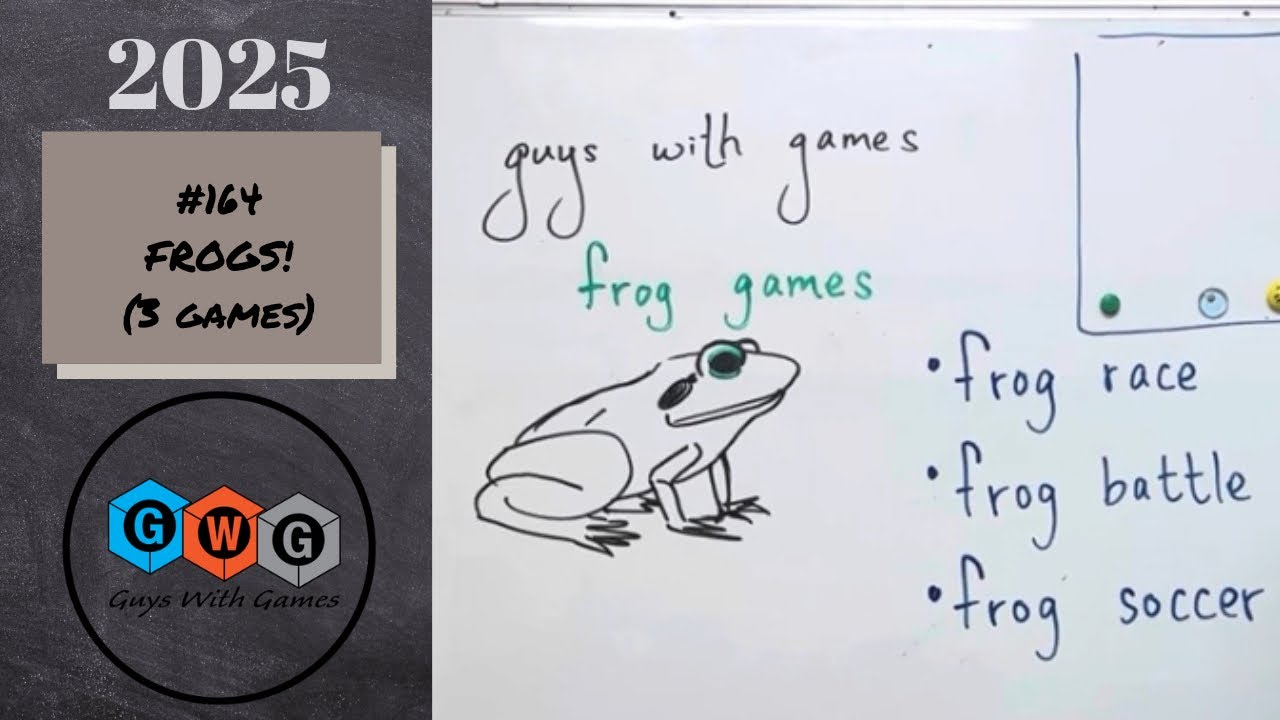 2025
#164
FROGS!
(3 GAMES)
G W G
Guys With Games
guys with games
frog games
• frog race
• frog battle
• frog soccer